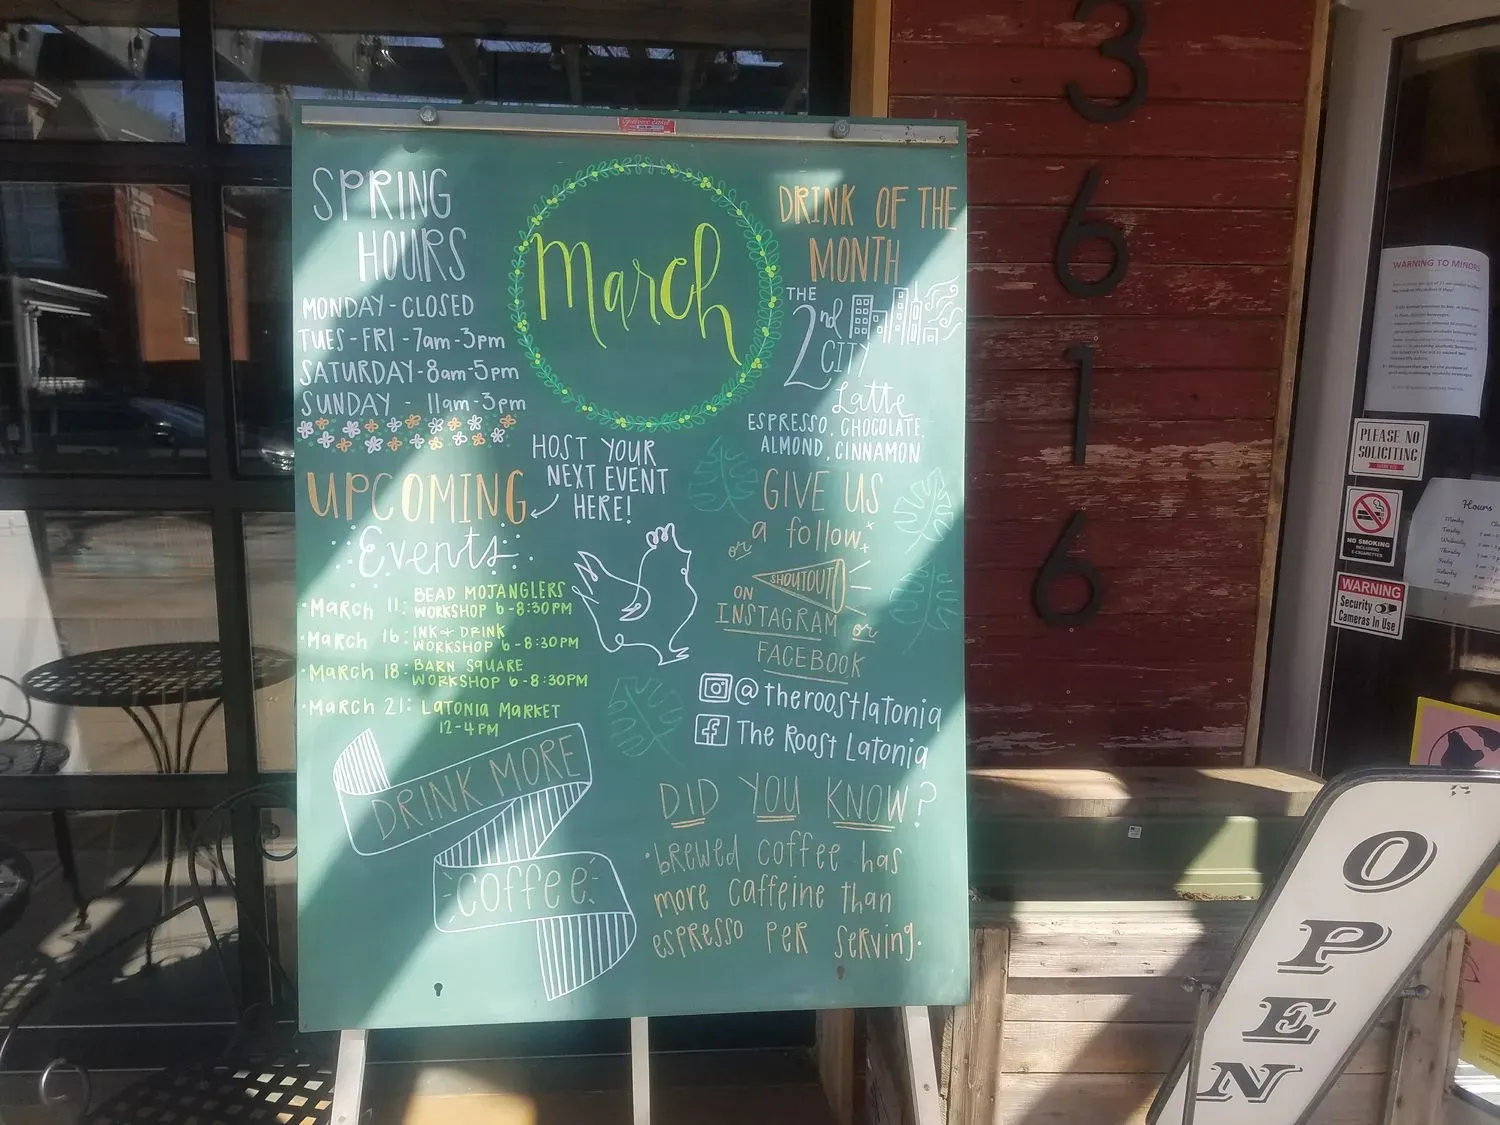 SPRING
HOURS
MONDAY - CLOSED
TUES - FRI - 7am - 3pm
SATURDAY - 8am - 5pm
SUNDAY - 11am - 3pm
March
DRINK OF THE
MONTH
THE
2nd
CITY
Latte
ESPRESSO, CHOCOLATE,
ALMOND, CINNAMON
HOST YOUR
NEXT EVENT
HERE!
UPCOMING
Events
• MARCH 11: BEAD MOJANGLERS
WORKSHOP 6 - 8:30PM
• MARCH 16: INK + DRINK
WORKSHOP 6 - 8:30PM
• MARCH 18: BARN SQUARE
WORKSHOP 6 - 8:30PM
• MARCH 21: LATONIA MARKET
12 - 4PM
GIVE US
a follow
or
SHOUTOUT
ON
INSTAGRAM or
FACEBOOK
@theroostlatonia
The Roost Latonia
DRINK MORE
coffee
DID YOU KNOW?
• brewed coffee has
more caffeine than
espresso per serving.
3
6
1
6
WARNING TO MINORS
PLEASE NO
SOLICITING
NO SMOKING
INCLUDING
E-CIGARETTES
WARNING
Security
Cameras In Use
Hours
Monday
Tuesday
Wednesday
Thursday
Friday
Saturday
Sunday
OPEN